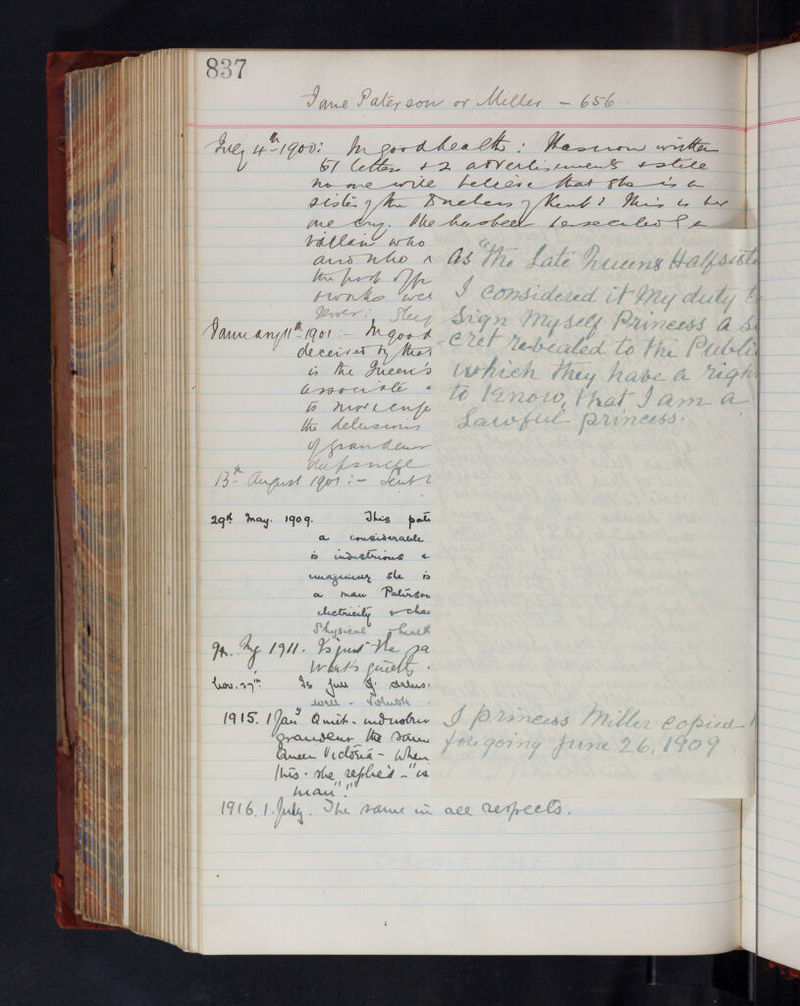 837
Jane Paterson or Miller - 656
July 4th 1900: In good health: Has now written
51 letters + 2 advertisements + still
no one will believe that she is a
sister of the Duchess of Kent? This is her
one cry. She has been persecuted
villain who
and who
the post off
works
Sleep
January 11th 1901 :- In good
deceived by
is the Queen's
associate
to
the delusions
of grandeur
13th August 1901 :-
29th May. 1909. This pati
a considerable
is industrious &
imagining she is
a man Paterson
electricity & cha
Physical health
1911. Is just the sa
Works quietly.
Nov. 27th Is full of delus.
well -
1915. 1 Jan Quiet - industrio
grandeur the same
Queen Victoria - When
this - she replied - "
man"!
1916. 1. July. The same in all respects.
As "the Late Queens Halfsiste
I considered it my duty t
Sign myself Princess a Se
cret revealed to the Public
which they have a righ
to know, that I am a
Lawful princess.
I princess Miller copied
foregoing June 26. 1909